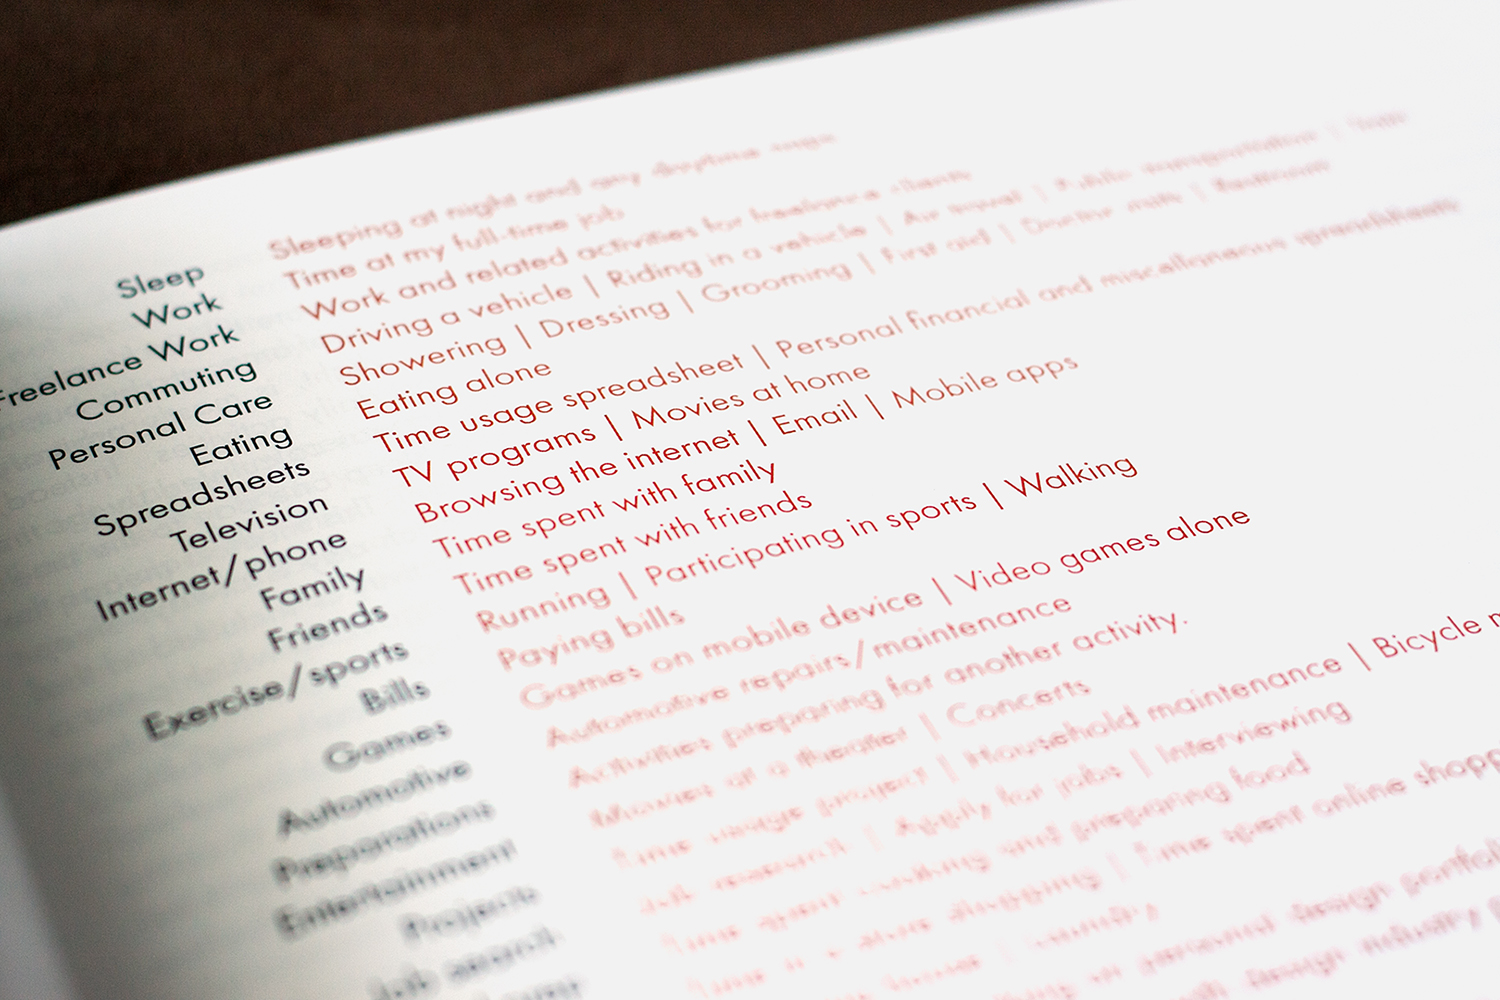 Sleep Sleeping at night and any daytime naps
Work Time at my full-time job
Freelance Work Work and related activities for freelance clients
Commuting Driving a vehicle | Riding in a vehicle | Air travel | Public transportation |
Personal Care Showering | Dressing | Grooming | First aid | Doctor visits | Restroom
Eating Eating alone
Spreadsheets Time usage spreadsheet | Personal financial and miscellaneous quantification
Television TV programs | Movies at home
Internet/phone Browsing the internet | Email | Mobile apps
Family Time spent with family
Friends Time spent with friends
Exercise/sports Running | Participating in sports | Walking
Bills Paying bills
Games Games on mobile device | Video games alone
Automotive Automotive repairs/maintenance
Preparations Activities preparing for another activity.
Entertainment Movies at a theater | Concerts
Projects Time usage project | Household maintenance | Bicycle
Job search Job research | Apply for jobs | Interviewing
Time spent cooking and preparing food
Time spent online
design portfolio
design industry